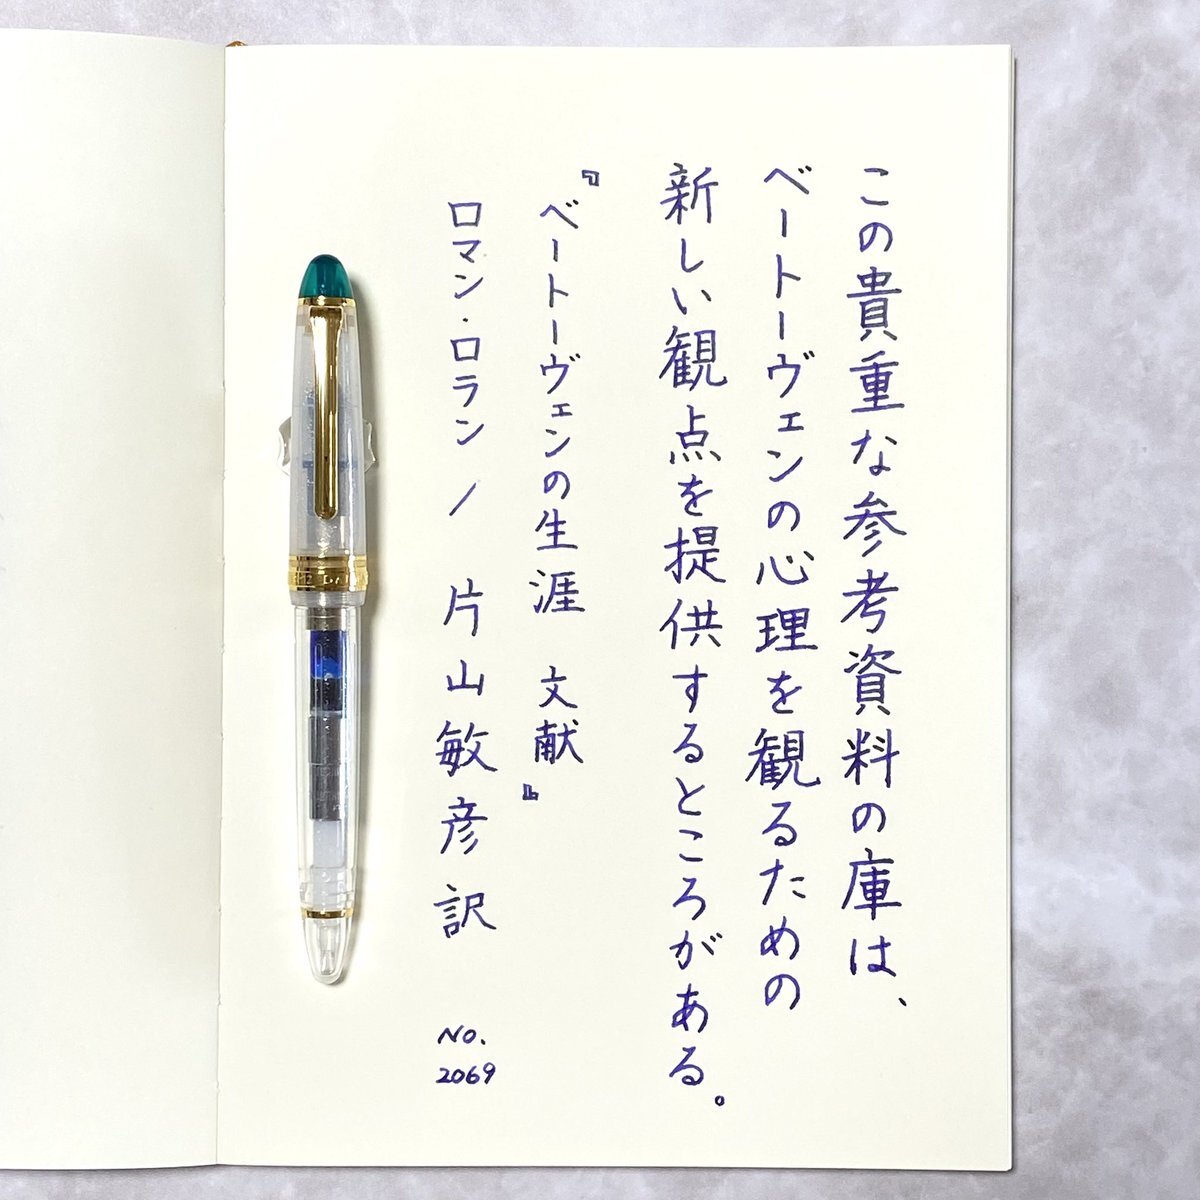 この貴重な参考資料の庫は、
ベートーヴェンの心理を観るための
新しい観点を提供するところがある。
『ベートーヴェンの生涯　文献』
ロマン・ロラン／片山敏彦訳
NO.
2069